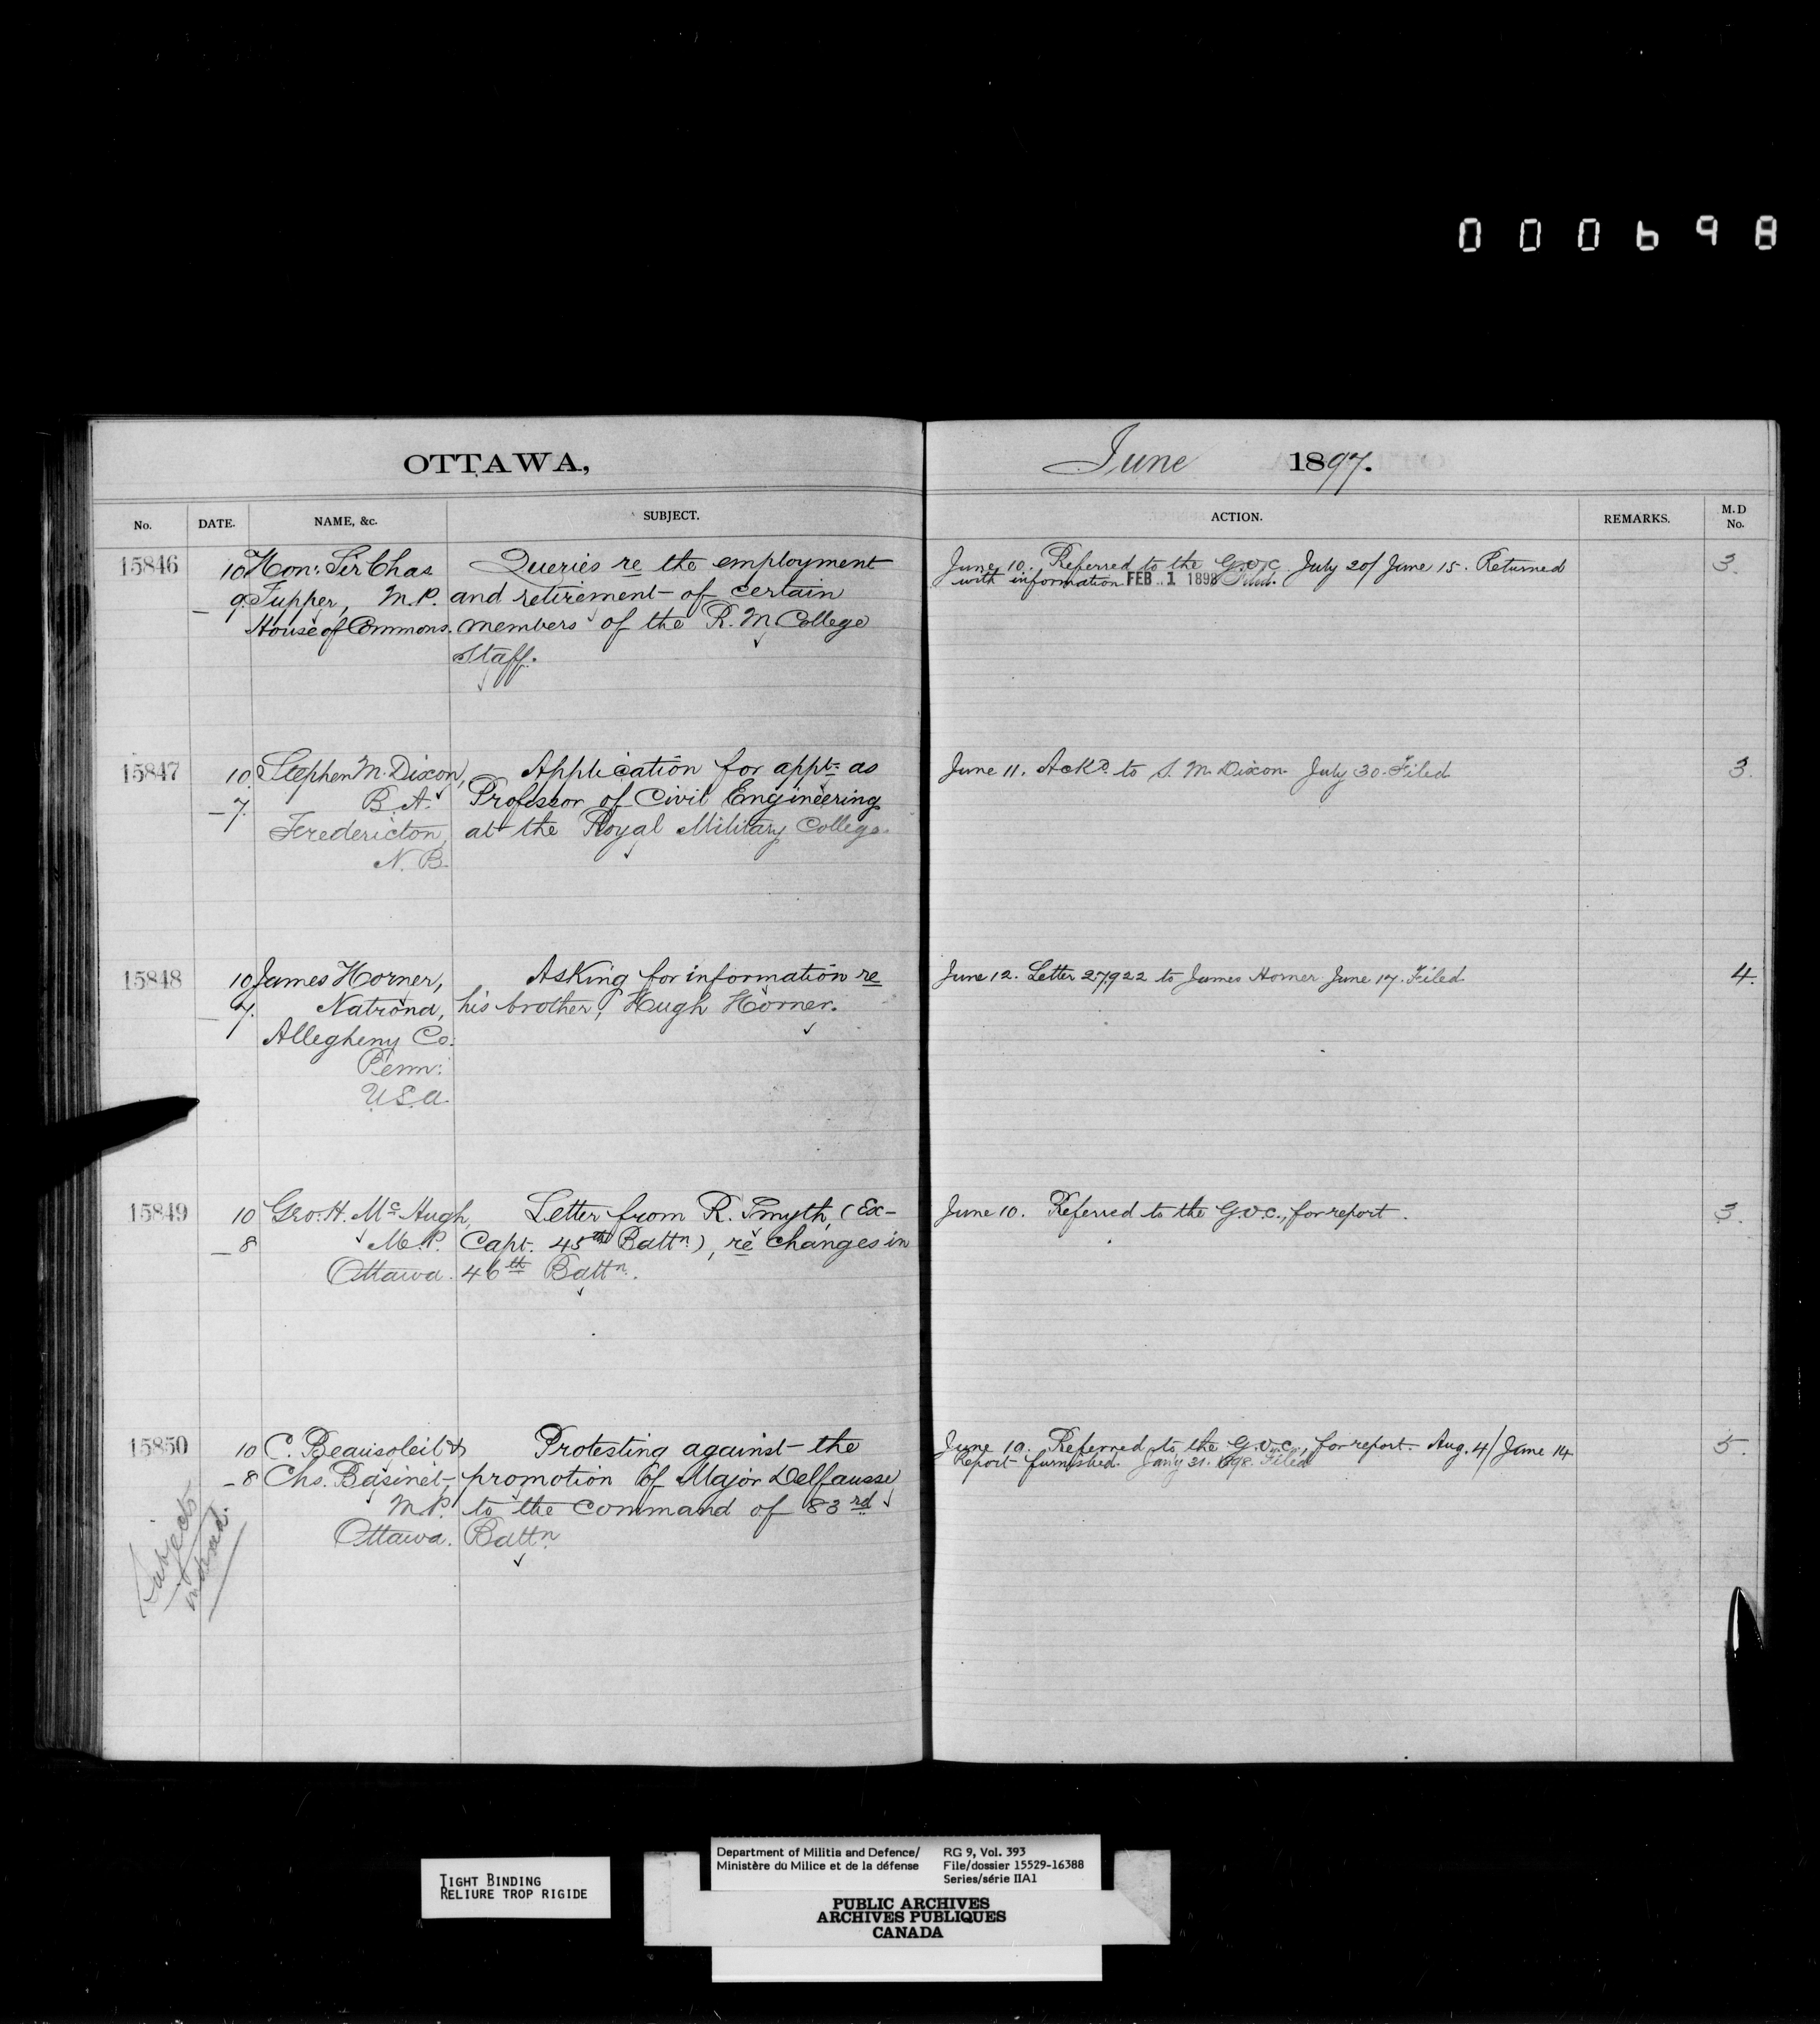 000698
OTTAWA,
June 1897.
No. DATE. NAME, &c. SUBJECT. ACTION. REMARKS. M.D No.
15846 10 Hon: Sir Chas. Queries re the employment June 10. Referred to the G.O.C. July 20/June 15. Returned 3.
– 9. Tupper, M.P. and retirement of certain with information. FEB. 1 1898 Filed.
House of Commons. members of the R. M. College
Staff.
15847 10. Stephen M. Dixon, Application for appt. as June 11. Ackd. to S. M. Dixon. July 30. Filed 3.
– 7. B.A. Professor of Civil Engineering
Fredericton, at the Royal Military College.
N.B.
15848 10 James Horner, Asking for information re June 12. Letter 27922 to James Horner June 17. Filed 4.
– 7. Natrona, his brother, Hugh Horner.
Allegheny Co.
Penn:
U.S.A.
15849 10 Geo: H. McHugh, Letter from R. Smyth, (Ex- June 10. Referred to the G.O.C., for report. 3.
– 8 M.P. Capt. 45th Battn.), re changes in
Ottawa. 46th Battn.
15850 10 C. Beausoleil & Protesting against the June 10. Referred to the G.O.C., for report. Aug. 4/June 14 5.
– 8 Chs. Basinet, promotion of Major Delfausse Report furnished. Jany 31. 1898. Filed
M.P. to the command of 83rd
Ottawa. Battn
Subjects
indexed.
TIGHT BINDING
RELIURE TROP RIGIDE
Department of Militia and Defence/ RG 9, Vol. 393
Ministère du Milice et de la défense File/dossier 15529-16388
Series/série IIA1
PUBLIC ARCHIVES
ARCHIVES PUBLIQUES
CANADA